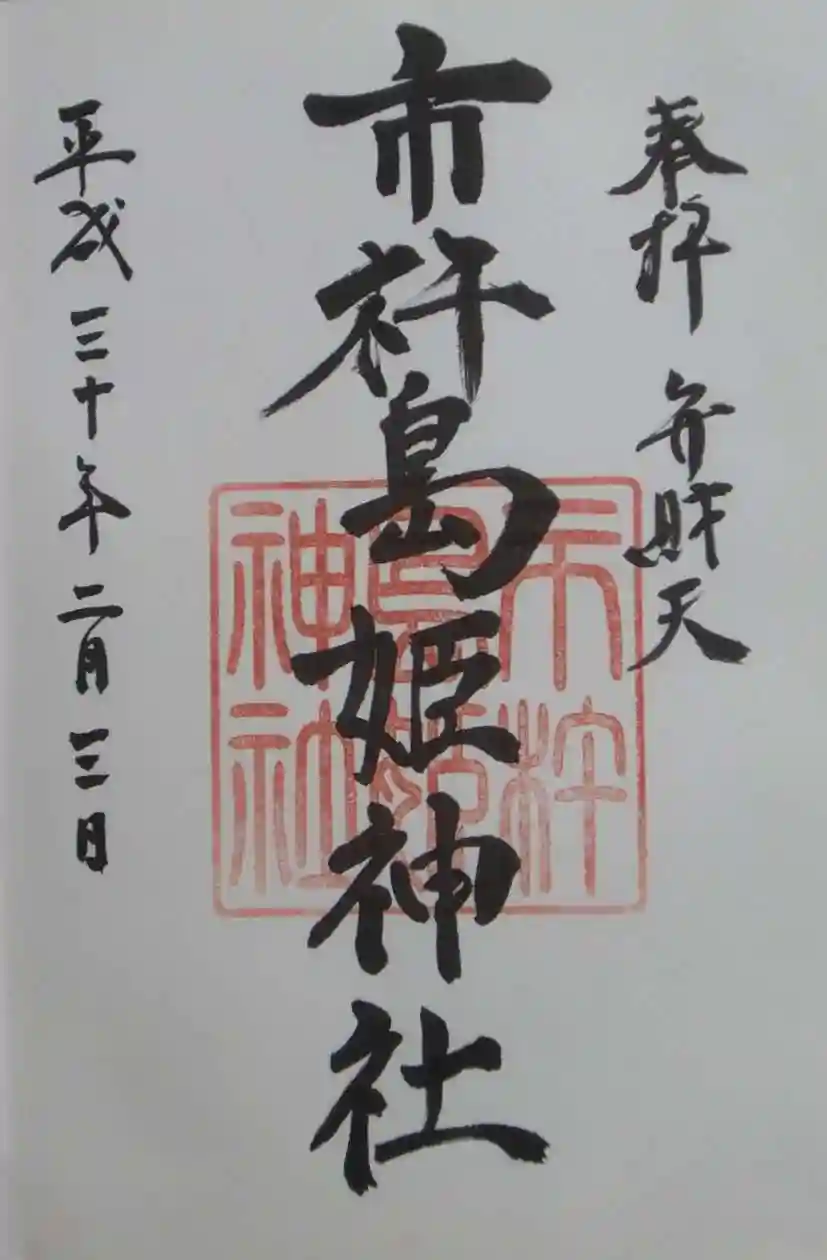 奉拝 弁財天
市杵島姫神社
市杵
島姫
神社
平成三十年二月三日